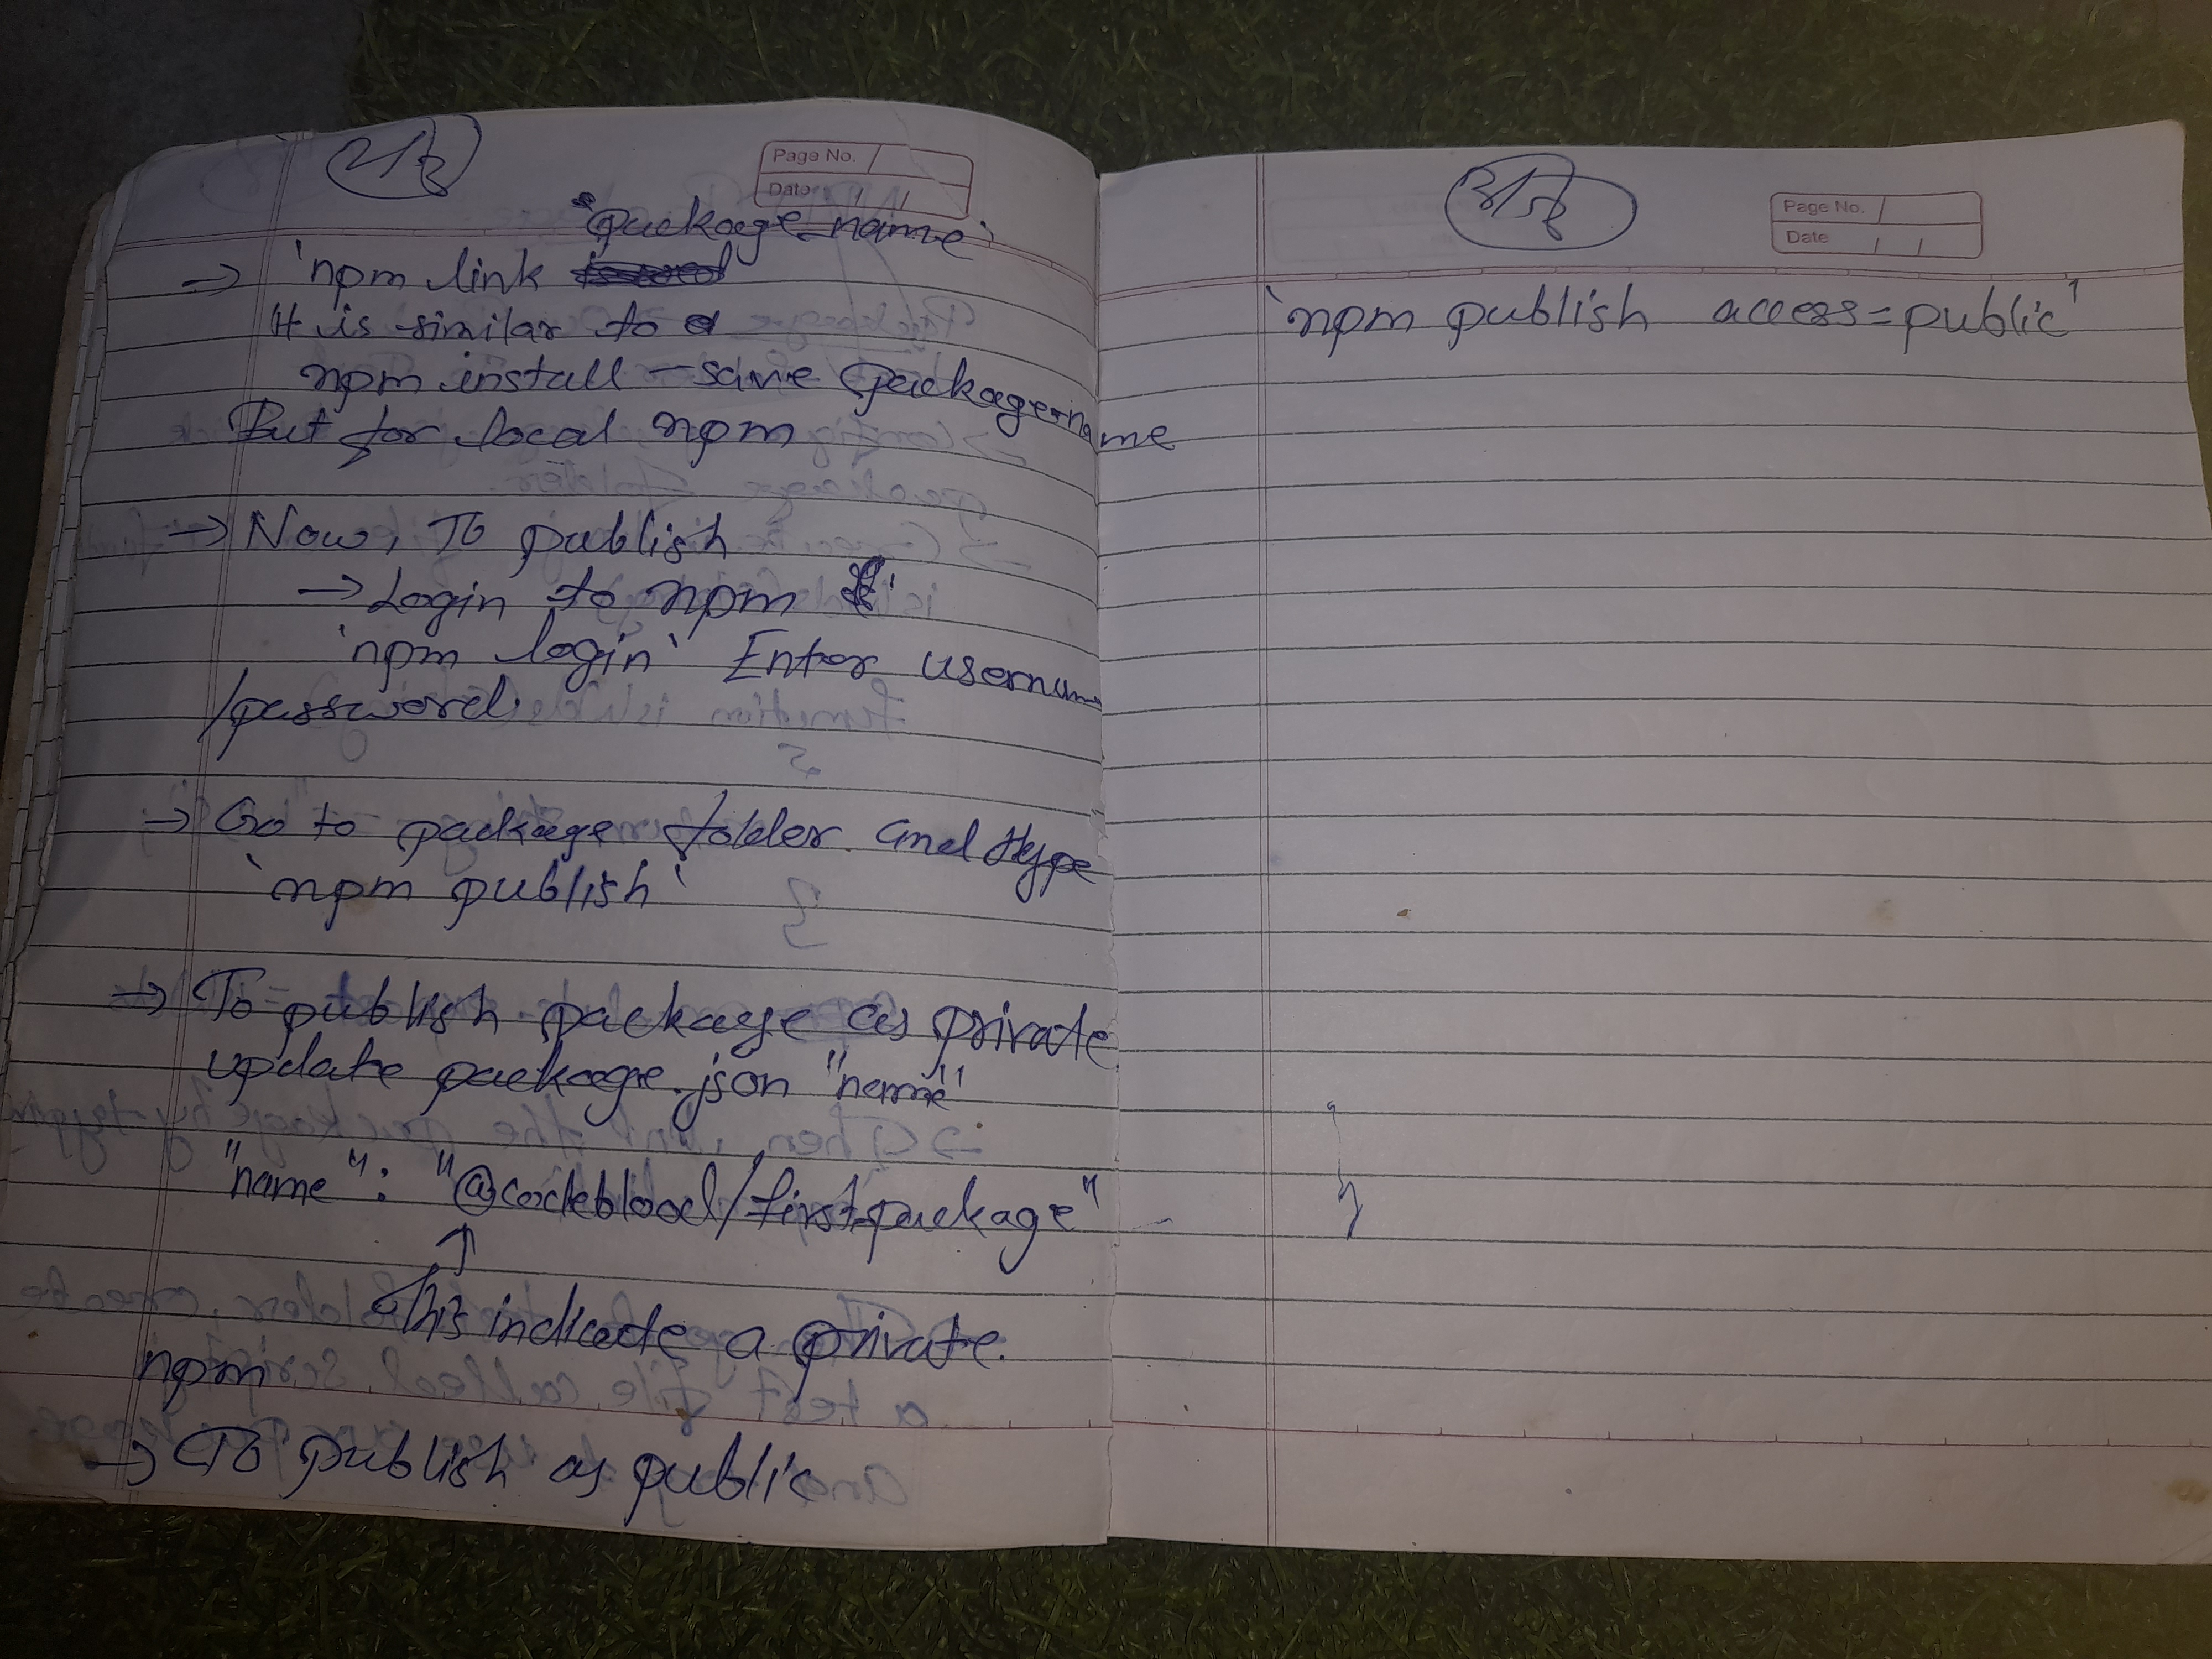 Page No.
Date
"package-name`
→ `npm link
It is similar to
npm install -same package-name
But for local npm
→ Now, To publish
→ Login to npm
`npm login` Enter usernum
/password
→ Go to package folder and type
`npm publish`
→ To publish package as private
update package.json "name"
"name": "@cockblocl/first-package"
↑
this indicate a private
npm
→ To publish as public
Page No.
Date
`npm publish access=public`